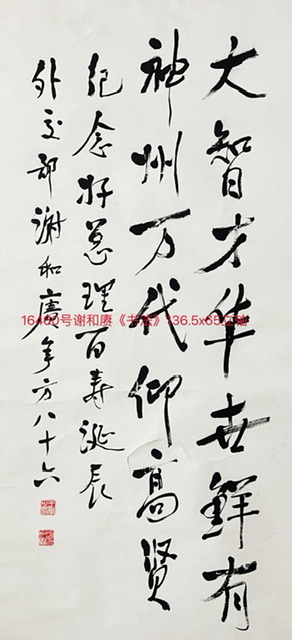 大智才华世鲜有
神州万代仰高贤
纪念好总理百寿诞辰
外交部谢和赓年方八十六
谢和赓《书法》136.5x65立轴